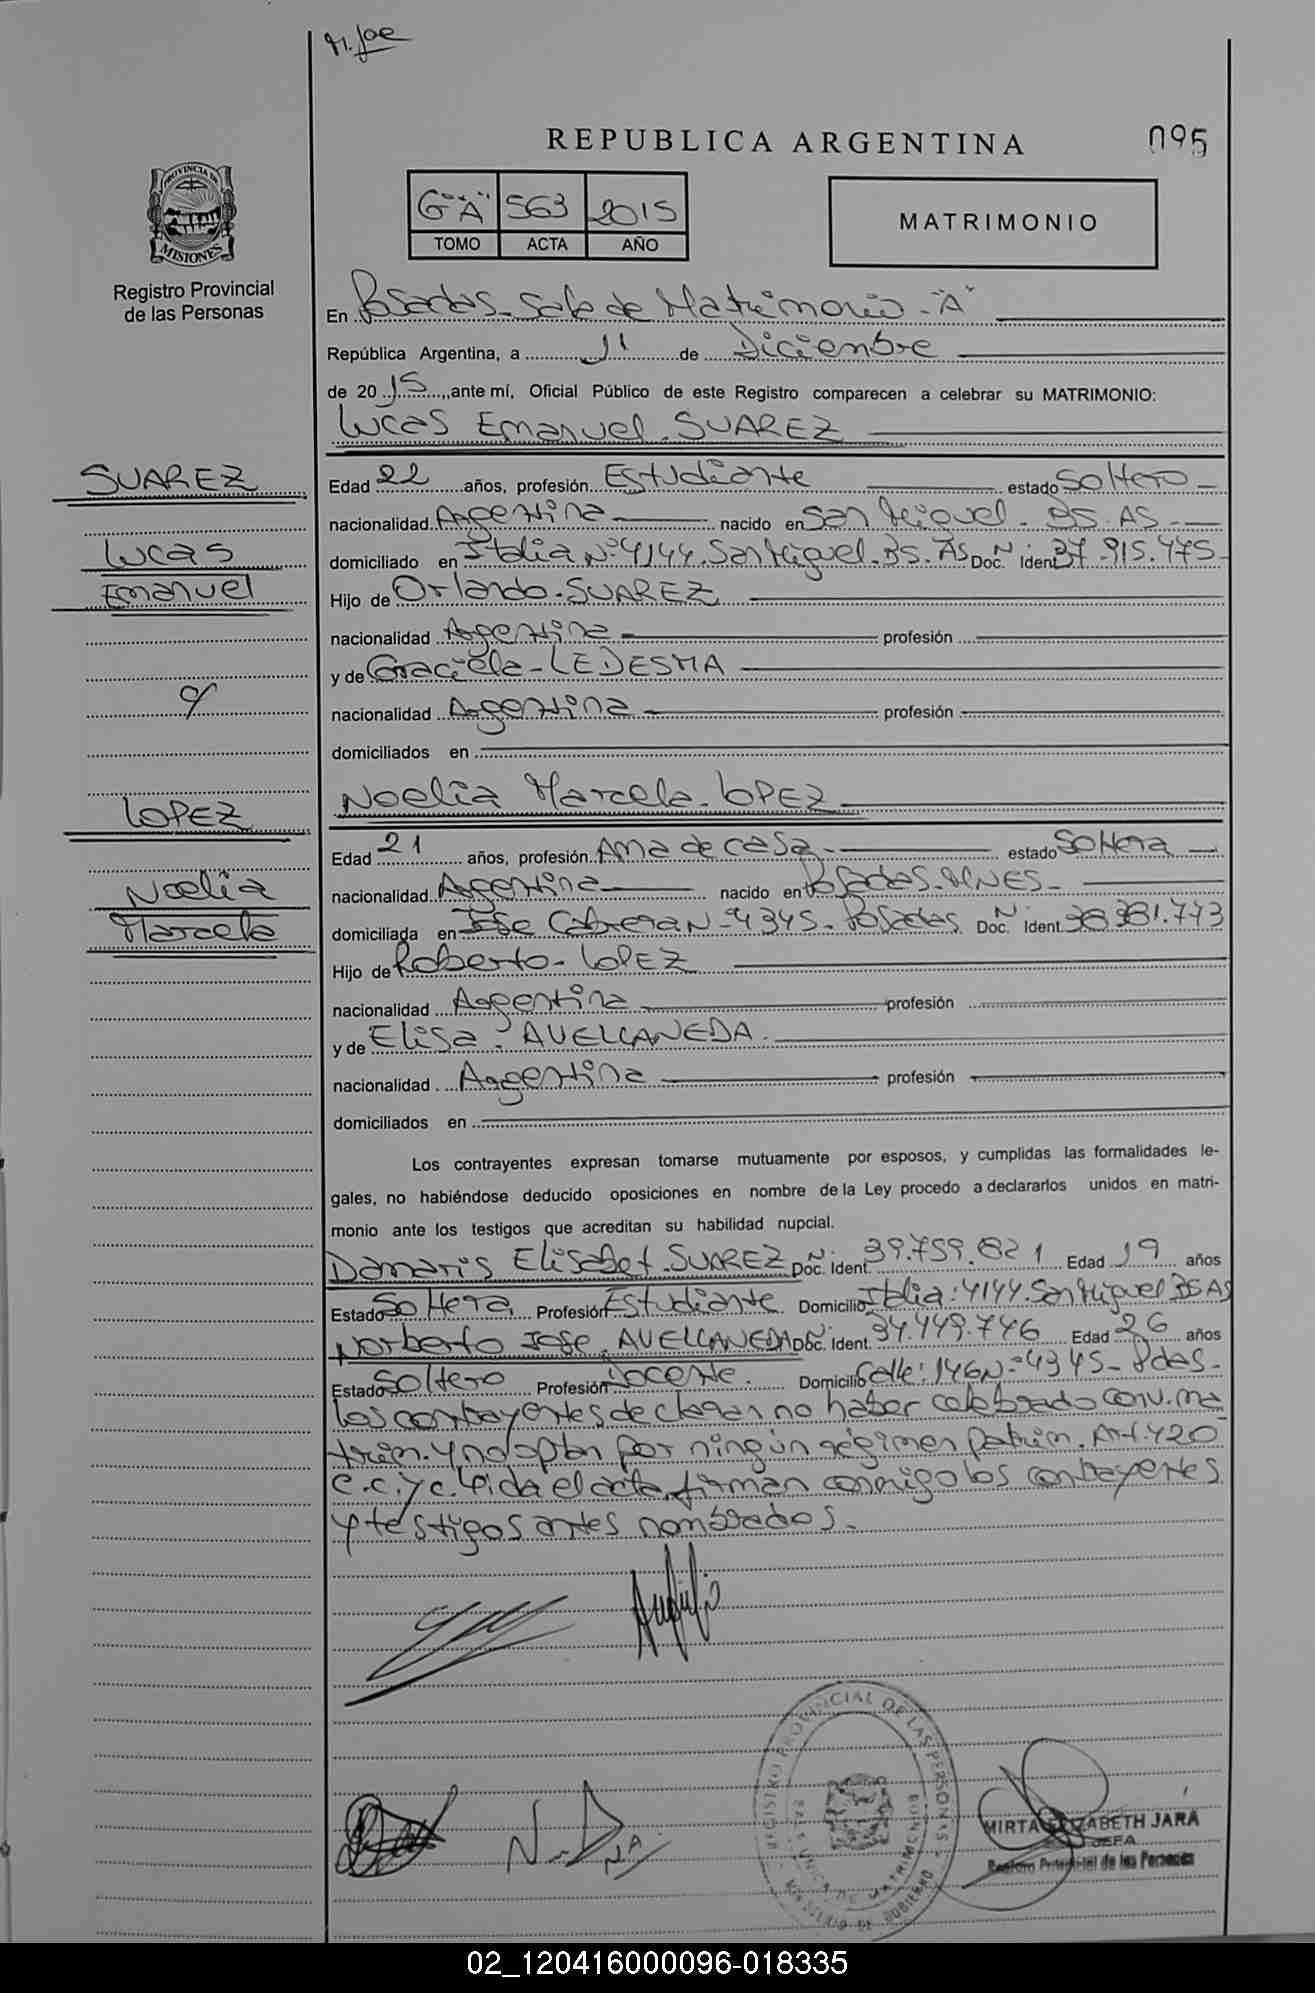 REPUBLICA ARGENTINA
095
PROVINCIA DE
MISIONES
Registro Provincial
de las Personas
G"A" 563 2015
TOMO ACTA AÑO
MATRIMONIO
En Posadas-Sala de Matrimonio-"A"
República Argentina, a 11 de Diciembre
de 2015, ante mí, Oficial Público de este Registro comparecen a celebrar su MATRIMONIO:
Lucas Emanuel SUAREZ
SUAREZ
Lucas
Emanuel
Edad 22 años, profesión Estudiante estado Soltero
nacionalidad Argentina nacido en San Miguel. BS. AS.
domiciliado en Italia Nº 4144. San Miguel. BS. AS Doc. N. Ident 37.915.475
Hijo de Orlando. SUAREZ
nacionalidad Argentina profesión
y de Graciela-LEDESMA
nacionalidad Argentina profesión
domiciliados en
c/
LOPEZ
Noelia
Marcela
Noelia Marcela-LOPEZ
Edad 21 años, profesión Ama de casa estado Soltera
nacionalidad Argentina nacido en Posadas-MNES-
domiciliada en Jose Cabrera Nº 4345-Posadas Doc. N. Ident 38.381.773
Hijo de Roberto-LOPEZ
nacionalidad Argentina profesión
y de Elisa. AVELLANEDA.
nacionalidad Argentina profesión
domiciliados en
Los contrayentes expresan tomarse mutuamente por esposos, y cumplidas las formalidades le-
gales, no habiéndose deducido oposiciones en nombre de la Ley procedo a declararlos unidos en matri-
monio ante los testigos que acreditan su habilidad nupcial.
Damaris Elisabet. SUAREZ Doc. N. Ident. 39.759.821 Edad 19 años
Estado Soltera Profesión Estudiante Domicilio Italia: 4144. San Miguel BS AS
Norberto Jose. AVELLANEDA Doc. N. Ident. 34.449.746 Edad 26 años
Estado Soltero Profesión Docente. Domicilio Calle: 146 Nº 4345-Pdas-
Los contrayentes declaran no haber celebrado conv. ma
trim. y no optan por ningún régimen patrim. Art. 420
C.C. y C. Leida el acta, firman conmigo los contrayentes
y testigos antes nombrados.-
REGISTRO PROVINCIAL DE LAS PERSONAS
MINISTERIO DE GOBIERNO
MIRTA ELIZABETH JARA
JEFA
Registro Provincial de las Personas
02_120416000096-018335